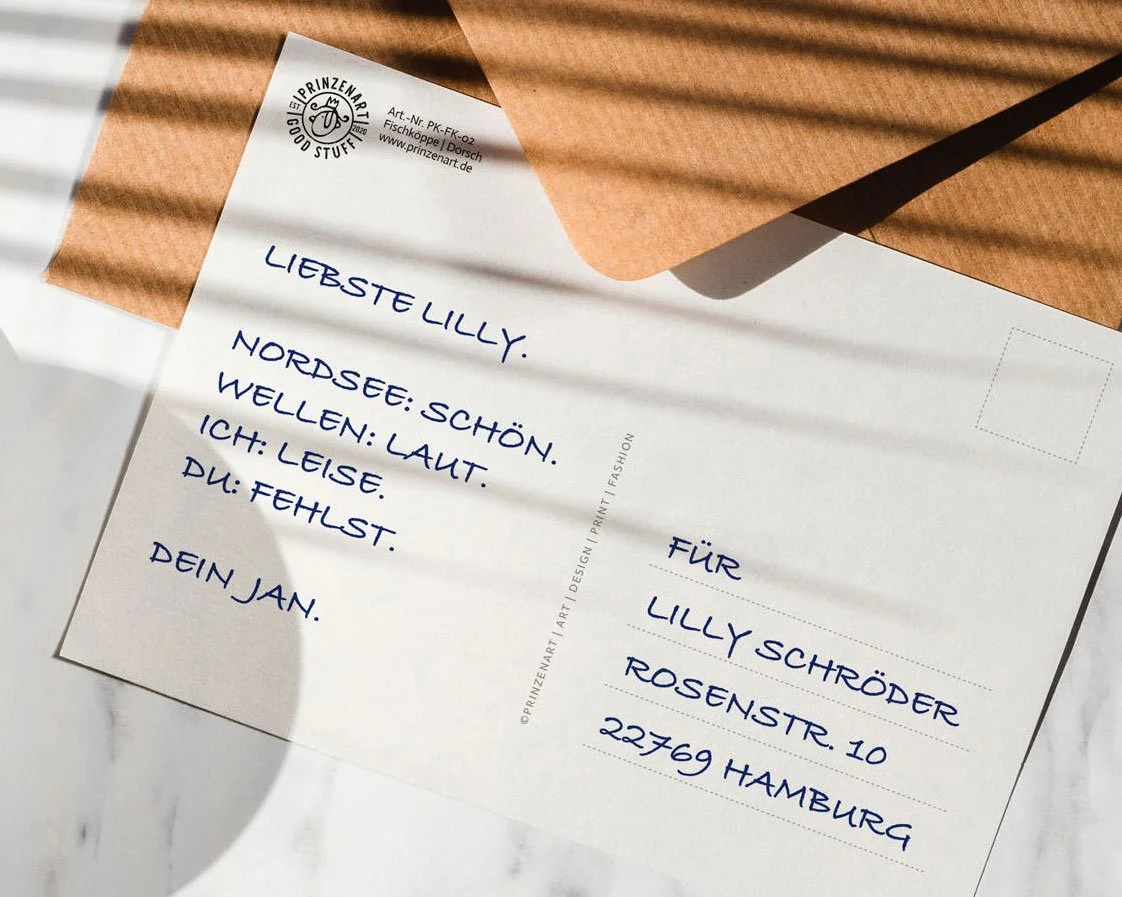 PRINZENART
EST. 2020
GOOD STUFF
Art.-Nr. PK-FK-02
Fischköppe | Dorsch
www.prinzenart.de
LIEBSTE LILLY.
NORDSEE: SCHÖN.
WELLEN: LAUT.
ICH: LEISE.
DU: FEHLST.
DEIN JAN.
©PRINZENART | ART | DESIGN | PRINT | FASHION
FÜR
LILLY SCHRÖDER
ROSENSTR. 10
22769 HAMBURG